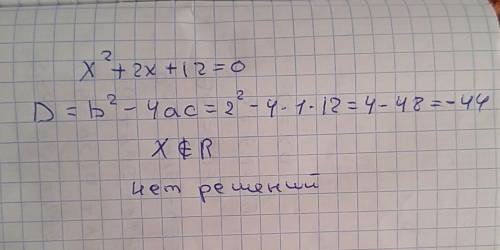 x² + 2x + 12 = 0
D = b² - 4ac = 2² - 4 · 1 · 12 = 4 - 48 = -44
X ∉ R
нет решений